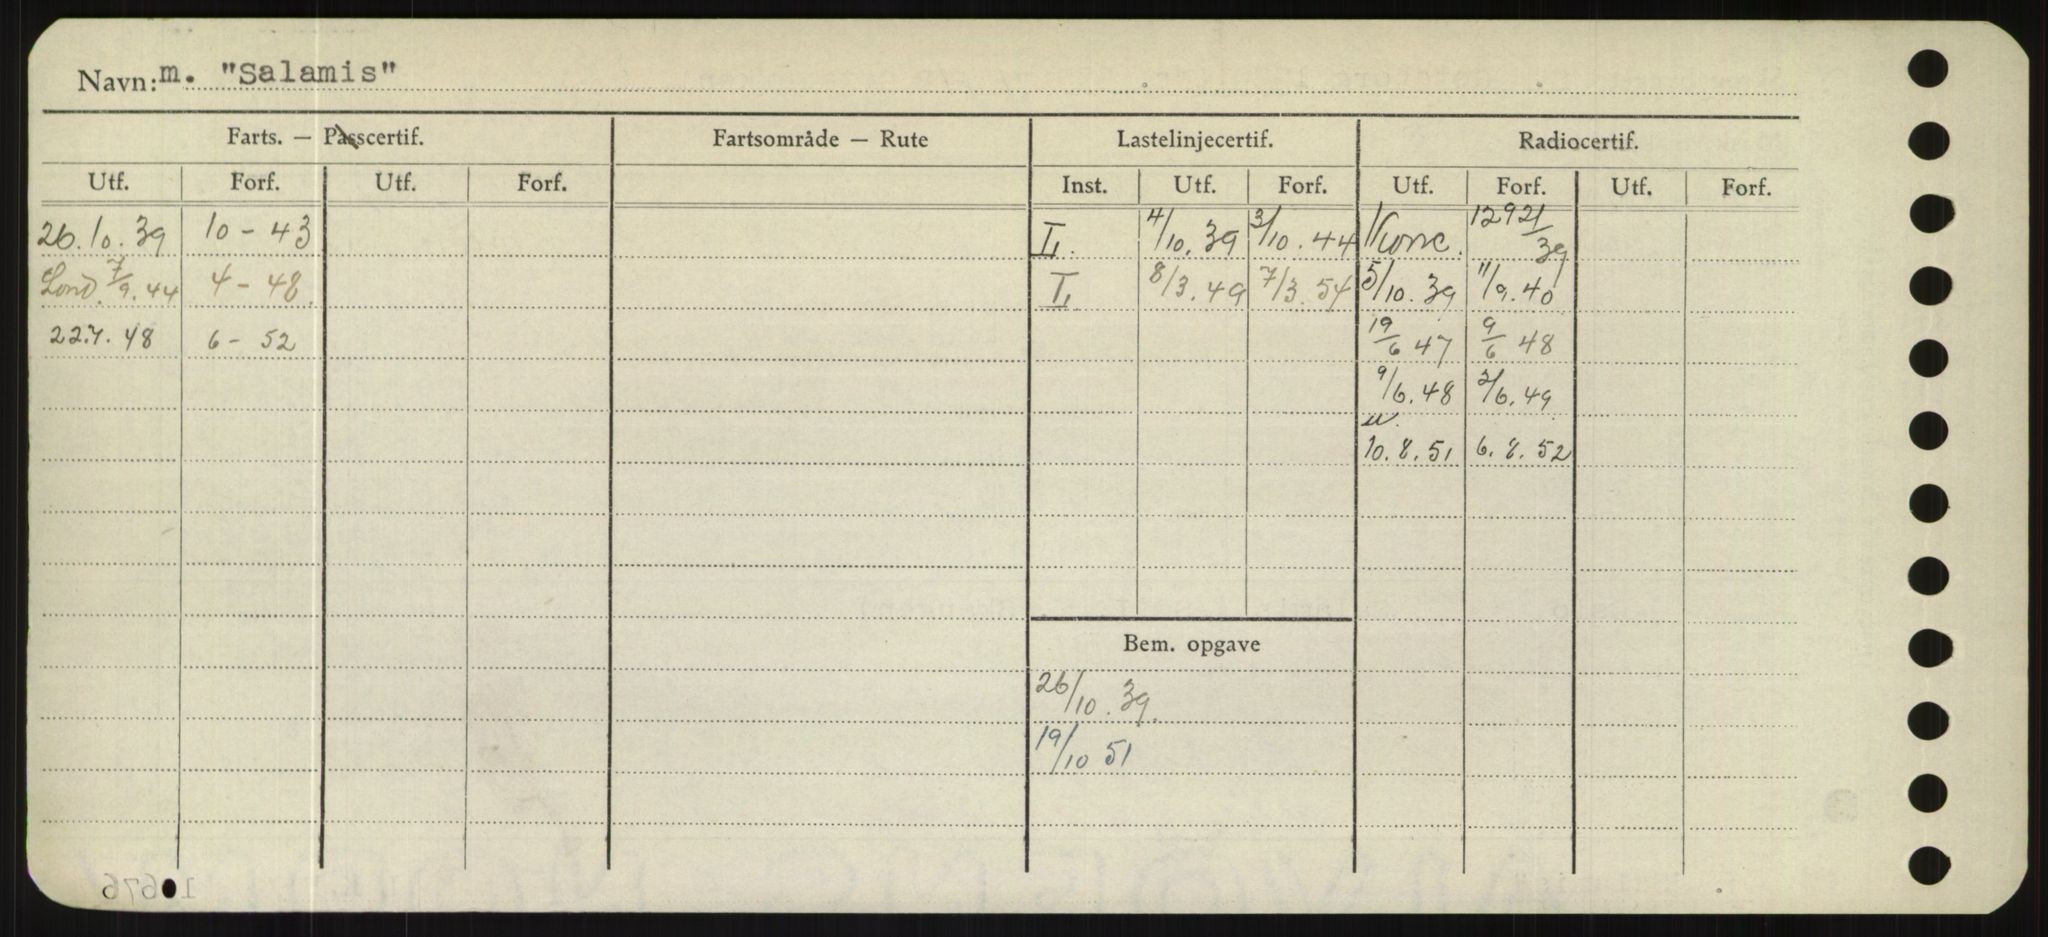 Navn: m. "Salamis"
Farts. — Passcertif. Fartsområde — Rute Lastelinjecertif. Radiocertif.
Utf. Forf. Utf. Forf. Inst. Utf. Forf. Utf. Forf. Utf. Forf.
26.10.39 10 - 43 I. 4/10.39 3/10.44 Konc. 12921/39
Lond. 7/9.44 4 - 48 I. 8/3.49 7/3.54 5/10.39 11/9.40
22.7.48 6 - 52 19/6 47 9/6 48
9/6.48 2/6.49
u.
10.8.51 6.8.52
Bem. opgave
26/10.39.
19/10 51